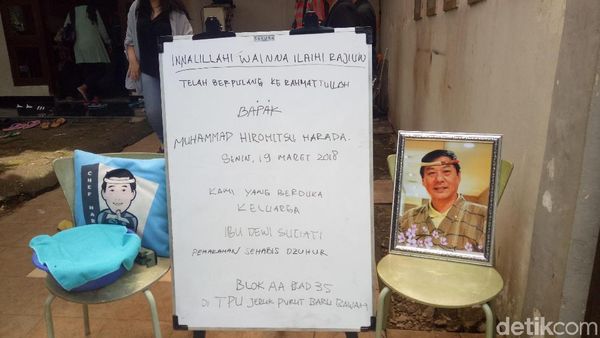 INNALILLAHI WAINNA ILAIHI RAJIUN
TELAH BERPULANG KE RAHMATTULLAH
BAPAK
MUHAMMAD HIROMITSU HARADA.
SENIN, 19 MARET 2018
KAMI YANG BERDUKA
KELUARGA
IBU DEWI SUCIATI
PEMAKAMAN SEHABIS DZUHUR
BLOK AA BAD 35
DI TPU JERUK PURUT BARU BAWAH
CHEF HAR
detikcom